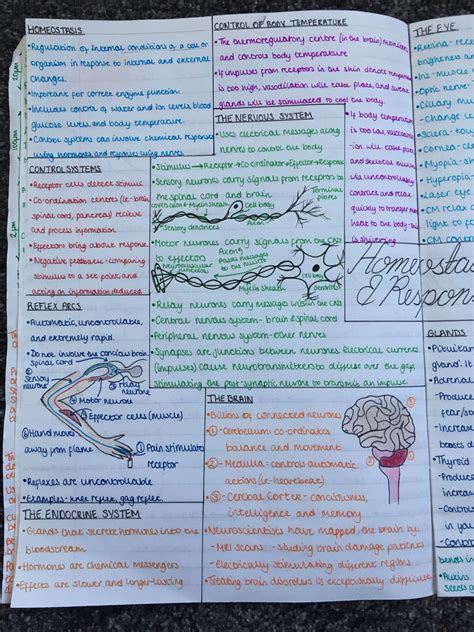 HOMEOSTASIS
•Regulation of internal conditions of a cell or
organism in response to internal and external
changes.
•Important for correct enzyme function.
•Includes control of water and ion levels, blood
glucose levels, and body temperature.
•Control systems can involve chemical responses
using hormones and responses using nerves.
CONTROL SYSTEMS
•Receptor cells detect stimuli
•Co-ordination centres (ie-brain,
spinal cord, pancreas) recieve
and process information.
•Effectors bring about response.
•Negative feedback-comparing
stimulus to a set point, and
acting on information deduced.
REFLEX ARCS
•Automatic, uncontrollable,
and extremely rapid.
•Do not involve the concious brain
spinal cord
② Sensory
neurone
③ relay
neurone
④ Motor neurone
⑤ Effector cells (muscle)
⑥ Hand moves
away from flame
① Pain stimulates
receptor
•Reflexes are uncontrollable
•Examples-knee reflex, gag reflex.
THE ENDOCRINE SYSTEM
•Glands that secrete hormones into the
bloodstream.
•Hormones are chemical messengers
•Effects are slower and longer-lasting
CONTROL OF BODY TEMPERATURE
•The thermoregulatory centre (in the brain) monitors
and controls body temperature
•If impulses from receptors in the skin detect temperature
is too high, vasodilation will take place, and sweat
glands will be stimulated to cool the body.
•If body temperature
is too low, vasoconstriction
will take place
and skeletal muscles
will
uncontrollably
and relax
quickly to transfer more
heat to the body-this
is shivering
THE NERVOUS SYSTEM
•Uses electrical messages along
nerves to control the body
Stimulus→Receptor→Co-ordinator→Effector→Response
•Sensory neurones carry signals from receptors to
the spinal cord and brain
Cell body
Terminal
pores
Sensory dendrites
Axon
•Motor neurones carry signals from the CNS
to effectors
Axon
passes message
to the muscles
Cell body
neuromuscular
junction
Myelin sheath
Dendrites
•Relay neurones carry messages within the CNS
•Central nervous system-brain & spinal cord
•Peripheral nervous system-other nerves
•Synapses are junctions between neurones. Electrical currents
(impulses) cause neurotransmitters to diffuse over the gap
stimulating the post-synaptic neurone to transmit an impulse.
THE BRAIN
•Billions of connected neurones
•① -Cerebellum co-ordinates
balance and movement
•② -Medulla-controls automatic
actions (i.e-heartbeat)
•③ -Cerebral Cortex-conciousness,
intelligence and memory
•Neuroscientists have mapped the brain by:
-MRI scans -studying brain damage patients
-Electrically stimulating different regions
•Treating brain disorders is exceptionally difficult
③
①
②
Homeostas
& Respon
THE EYE
•Retina-
brightness
•Iris-
•Optic nerve-
•Ciliary
change
•Sclera-
•Cornea-
•Myopia-
•Hyperopia-
•Laser
•CM relax
light
•CM
GLANDS
•Pituitary
gland'. It
•Adrenal
-Produce
fear/
-Increase
-boosts
•Thyroid
-Produce
-Control
in
•Auxins